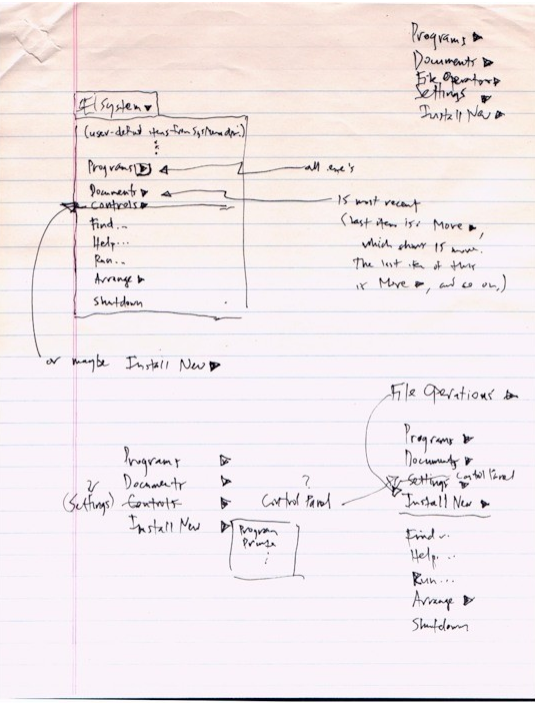 Programs ▶
Documents ▶
File Operations ▶
Settings ▶
Install New ▶
System ▼
(user-defined items from System dir.)
⋮
Programs ▶
all .exe's
Documents ▶
15 most recent
Controls ▶
(last item is: More ▶,
Find...
which shows 15 more.
Help...
The last item of this
Run...
is More ▶, and so on.)
Arrange ▶
Shutdown
or maybe Install New ▶
File Operations ▶
Programs ▶
Documents ▶
Settings ▶ Control Panel
Install New ▶
Find...
Help...
Run...
Arrange ▶
Shutdown
Programs ▷
Documents ▷
?
(Settings) Controls ▷
Install New ▷
?
Control Panel
Program
⋮